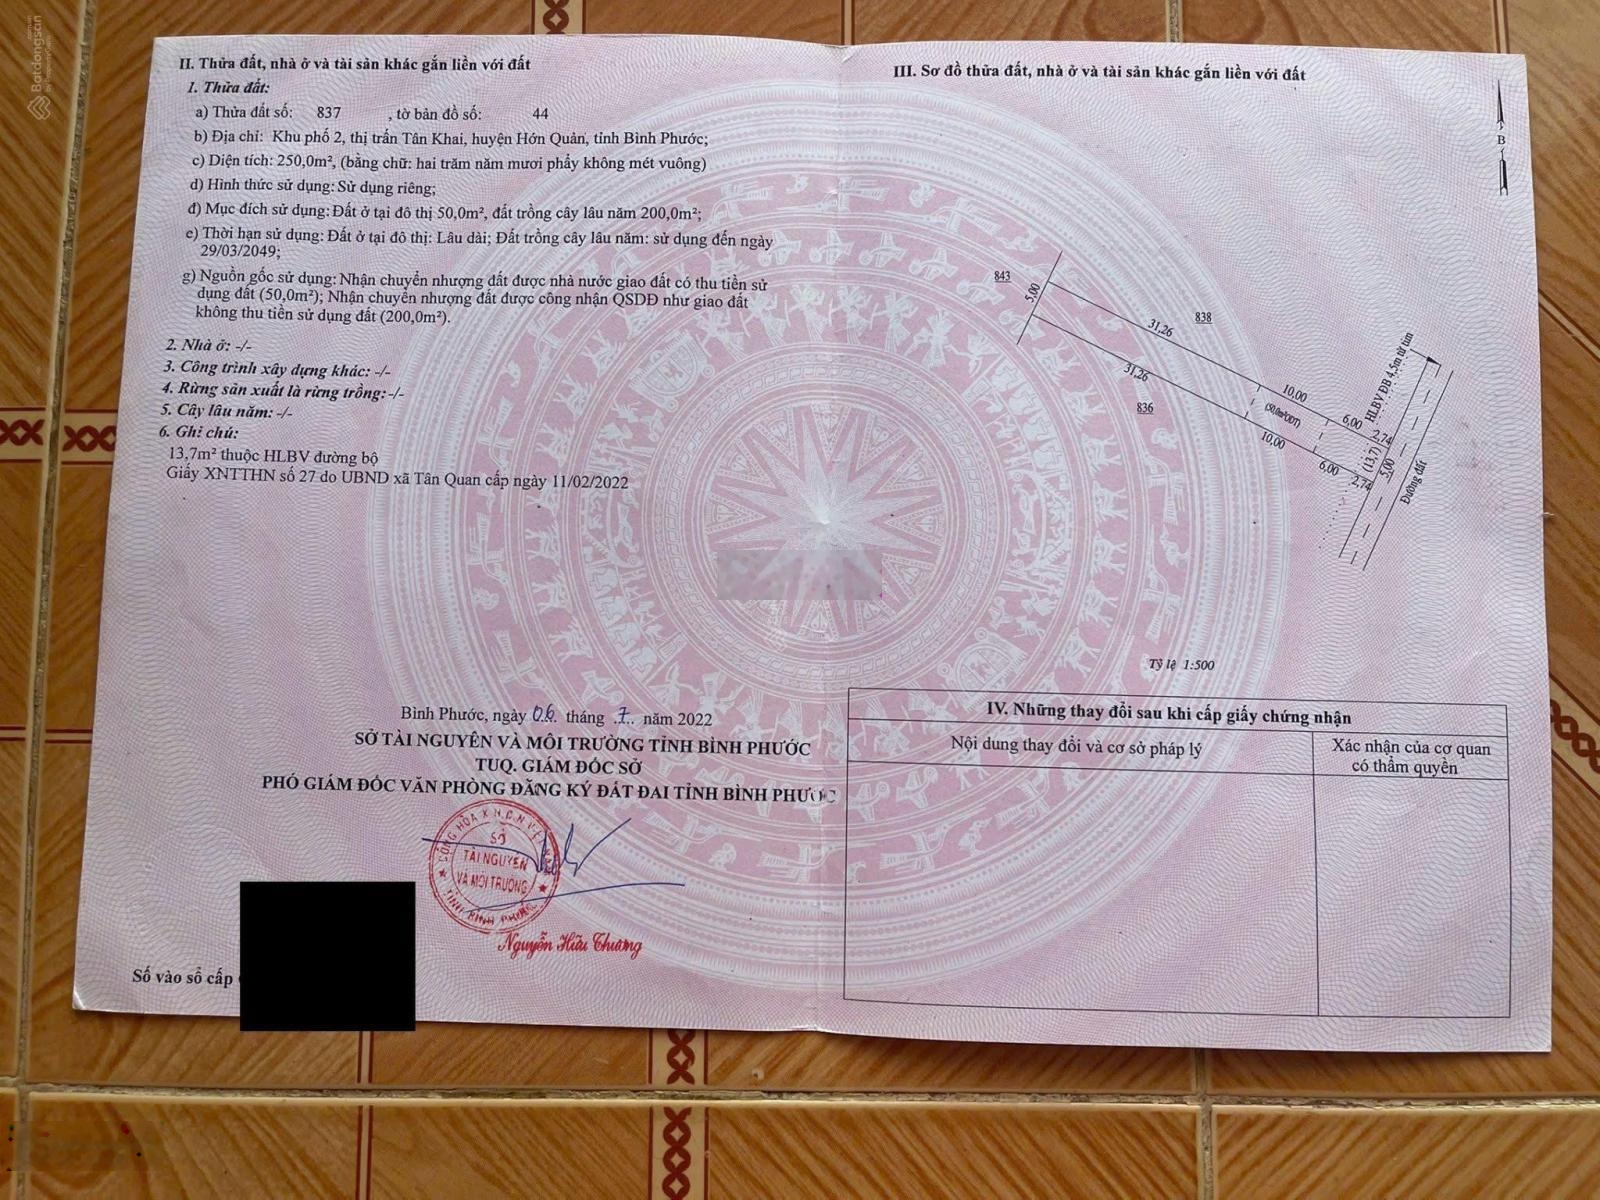 Batdongsan
by PropertyGuru
II. Thửa đất, nhà ở và tài sản khác gắn liền với đất
1. Thửa đất:
a) Thửa đất số: 837 , tờ bản đồ số: 44
b) Địa chỉ: Khu phố 2, thị trấn Tân Khai, huyện Hớn Quản, tỉnh Bình Phước;
c) Diện tích: 250,0m², (bằng chữ: hai trăm năm mươi phẩy không mét vuông)
d) Hình thức sử dụng: Sử dụng riêng;
đ) Mục đích sử dụng: Đất ở tại đô thị 50,0m², đất trồng cây lâu năm 200,0m²;
e) Thời hạn sử dụng: Đất ở tại đô thị: Lâu dài; Đất trồng cây lâu năm: sử dụng đến ngày
29/03/2049;
g) Nguồn gốc sử dụng: Nhận chuyển nhượng đất được nhà nước giao đất có thu tiền sử
dụng đất (50,0m²); Nhận chuyển nhượng đất được công nhận QSDĐ như giao đất
không thu tiền sử dụng đất (200,0m²).
2. Nhà ở: -/-
3. Công trình xây dựng khác: -/-
4. Rừng sản xuất là rừng trồng: -/-
5. Cây lâu năm: -/-
6. Ghi chú:
13,7m² thuộc HLBV đường bộ
Giấy XNTTHN số 27 do UBND xã Tân Quan cấp ngày 11/02/2022
Bình Phước, ngày 06. tháng .7.. năm 2022
SỞ TÀI NGUYÊN VÀ MÔI TRƯỜNG TỈNH BÌNH PHƯỚC
TUQ. GIÁM ĐỐC SỞ
PHÓ GIÁM ĐỐC VĂN PHÒNG ĐĂNG KÝ ĐẤT ĐAI TỈNH BÌNH PHƯỚC
SỞ
TÀI NGUYÊN
VÀ MÔI TRƯỜNG
TỈNH BÌNH PHƯỚC
Nguyễn Hữu Thương
Số vào sổ cấp
III. Sơ đồ thửa đất, nhà ở và tài sản khác gắn liền với đất
B
843
5,00
838
31,26
31,26
836
10,00
10,00
6,00
6,00
2,74
2,74
(13,7)
5,00
HLBV ĐB 4,5m từ tim
Đường đất
Tỷ lệ 1:500
IV. Những thay đổi sau khi cấp giấy chứng nhận
Nội dung thay đổi và cơ sở pháp lý
Xác nhận của cơ quan
có thẩm quyền